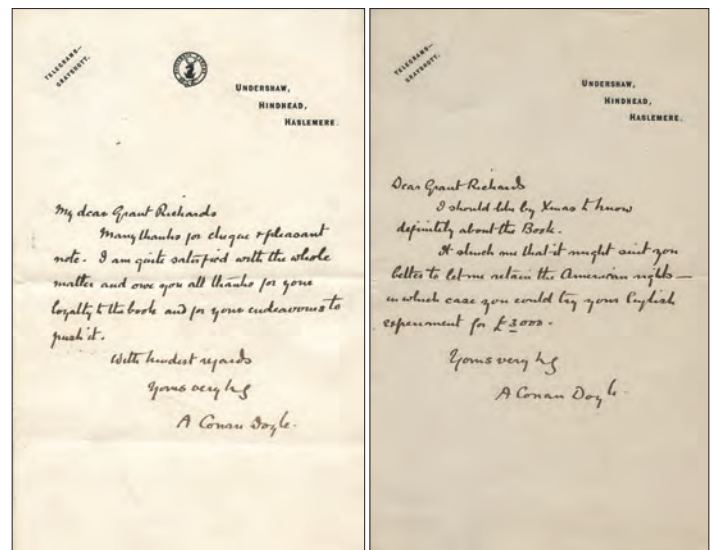 TELEGRAMS—
GRAYSHOTT.
UNDERSHAW,
HINDHEAD,
HASLEMERE.
My dear Grant Richards
Many thanks for cheque & pleasant
note. I am quite satisfied with the whole
matter and owe you all thanks for your
loyalty to the book and for your endeavours to
push it.
With kindest regards
Yours very
A Conan Doyle.
TELEGRAMS—
GRAYSHOTT.
UNDERSHAW,
HINDHEAD,
HASLEMERE.
Dear Grant Richards
I should like by Xmas to know
definitely about the Book.
It struck me that it might suit you
better to let me retain the American rights —
in which case you could try your English
experiment for £3000.
Yours very
A Conan Doyle.